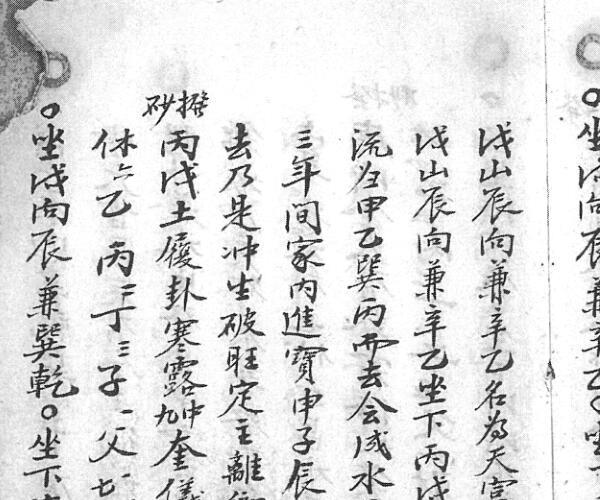 ○坐戌向辰兼辛乙○坐
戌山辰向兼辛乙名為天宫
戌山辰向兼辛乙坐下丙戌
流归甲乙巽丙而去会成水
三年间家内進寳申子辰
去乃是冲生破旺定主離鄉
撥砂
丙戌土履卦寒露中九奎儀
休六乙丙二丁三子一父七
○坐戌向辰兼巽乾○坐下